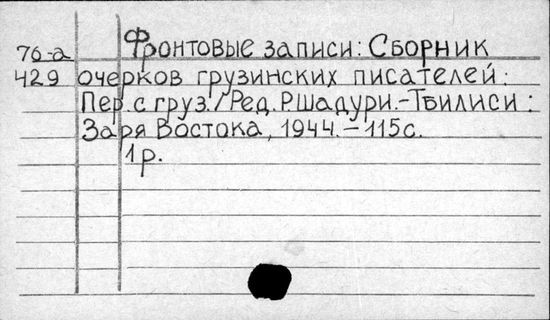 76-а Фронтовые записи: Сборник
429 очерков грузинских писателей:
Пер. с груз./Ред. Р.Шадури.-Тбилиси:
Заря Востока, 1944.-115с.
1р.